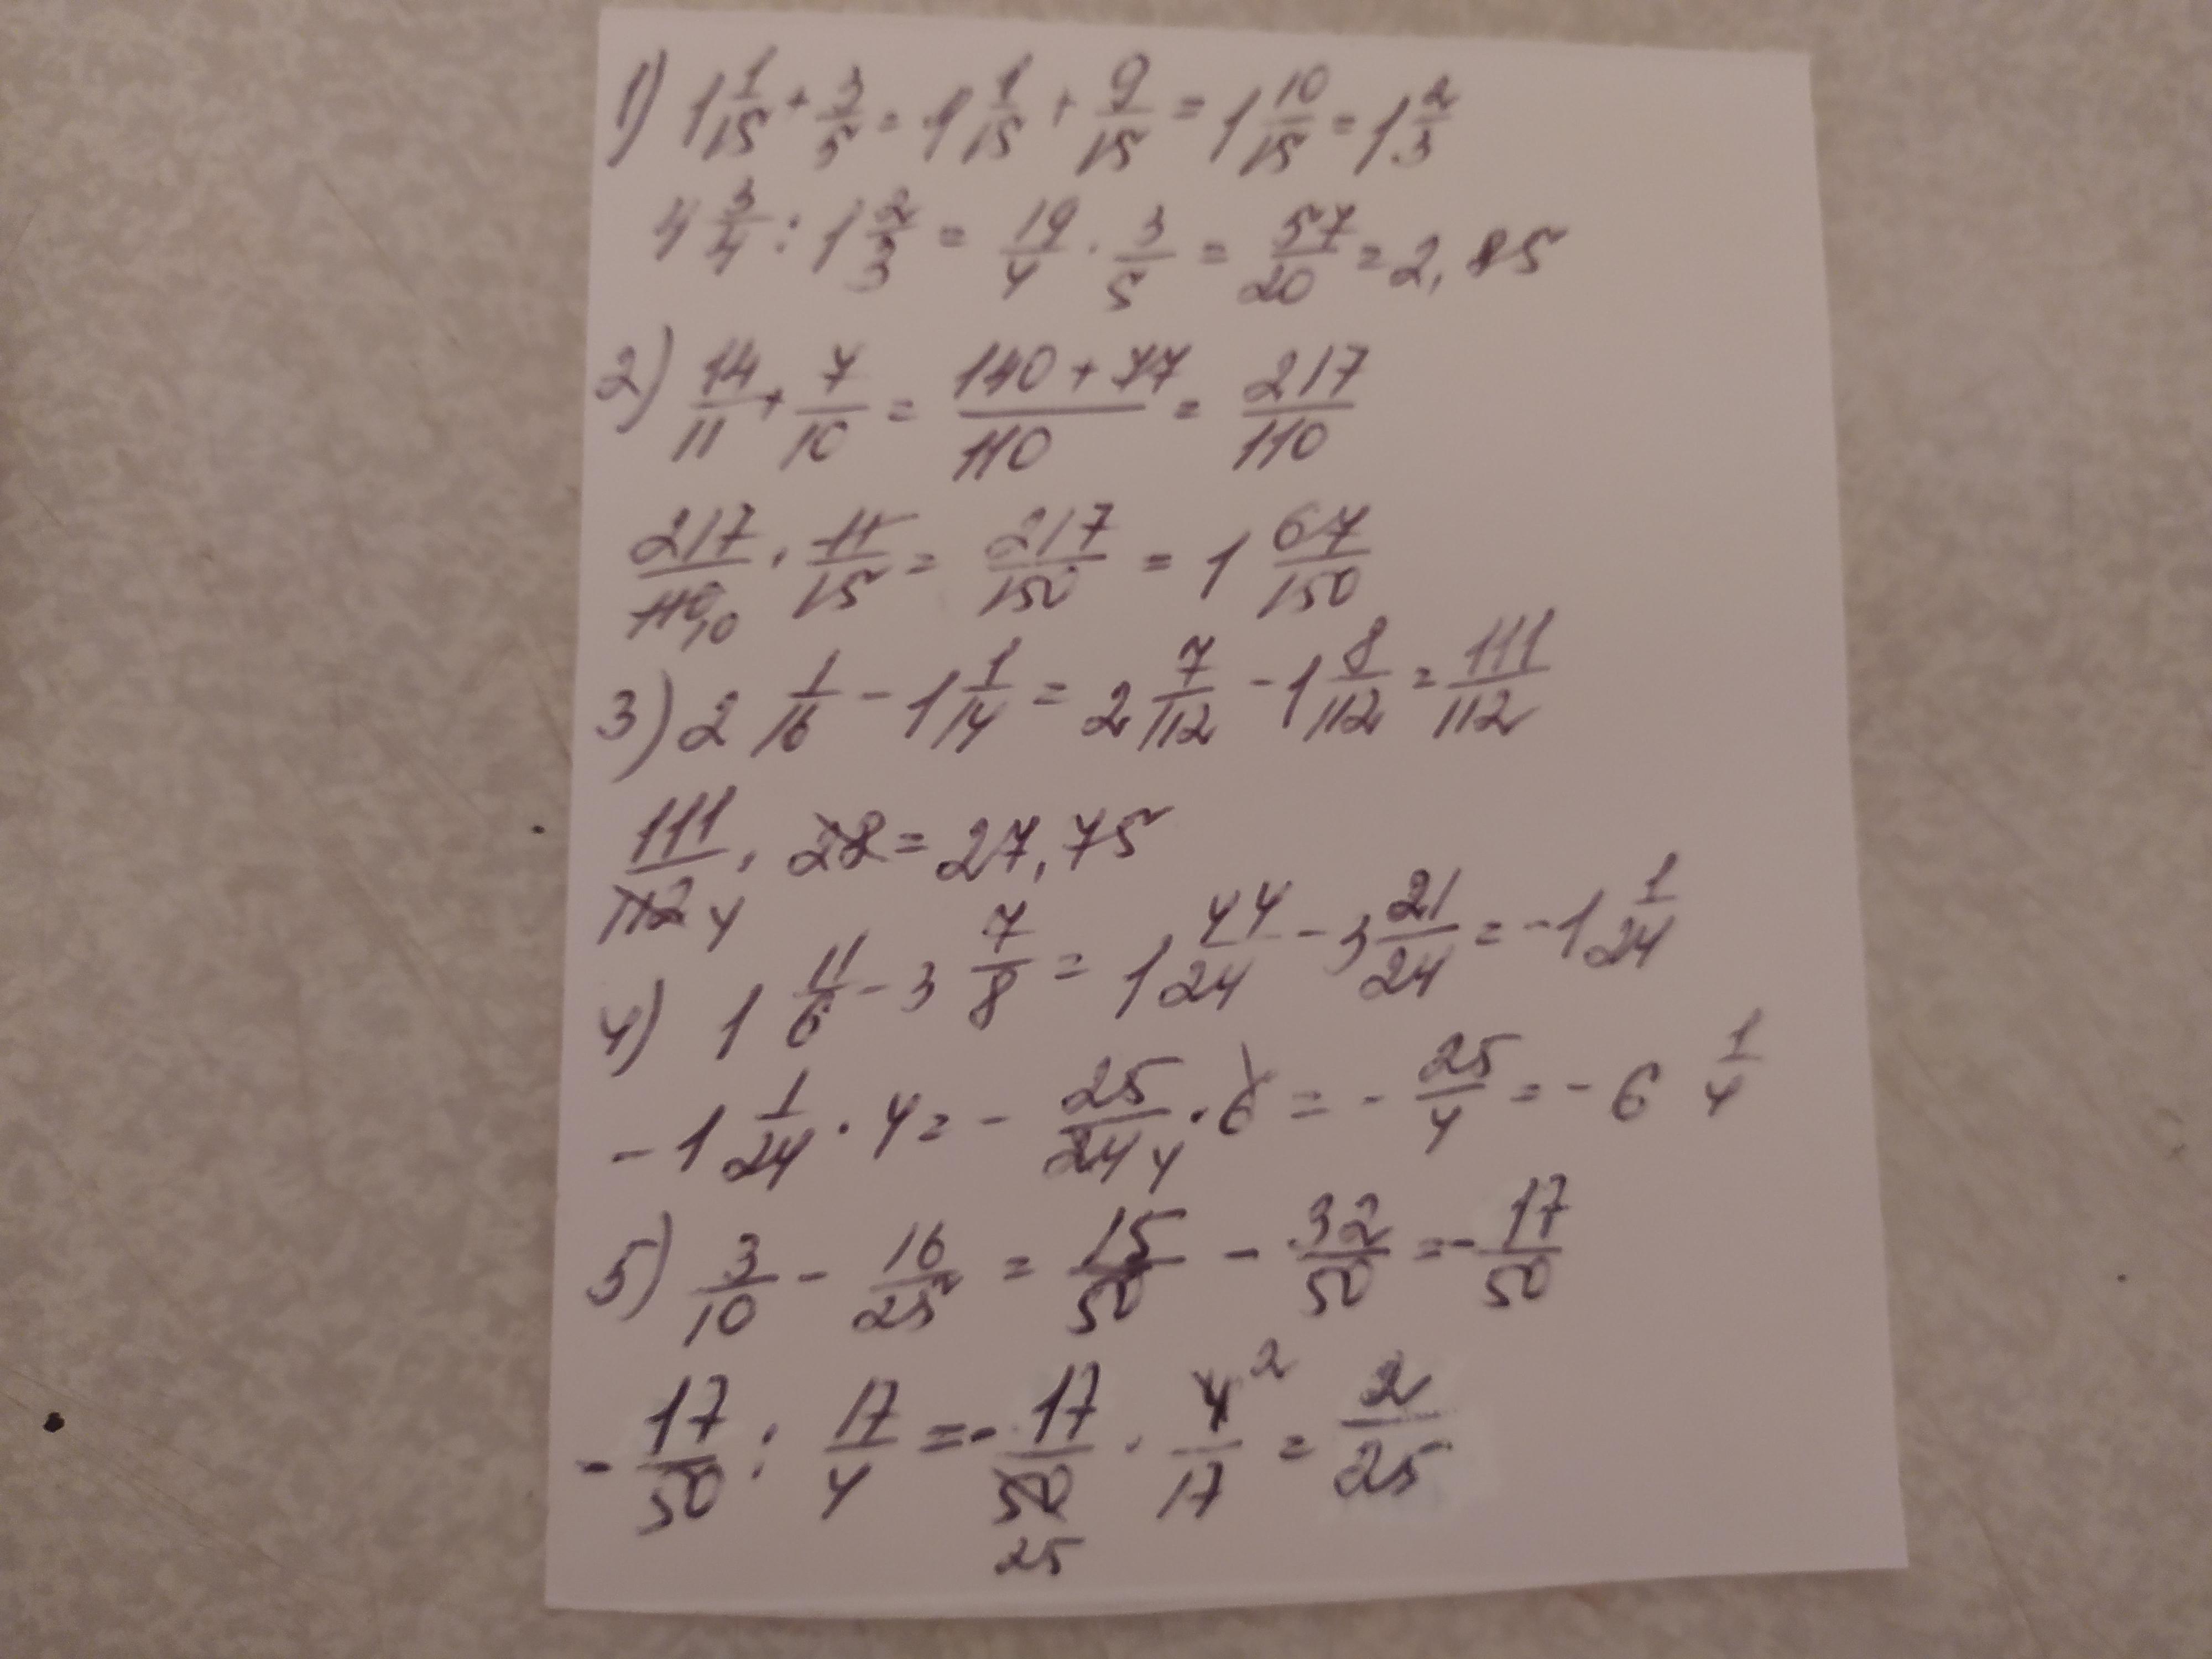 1) 1 1/15 + 3/5 = 1 1/15 + 9/15 = 1 10/15 = 1 2/3
4 3/4 : 1 2/3 = 19/4 · 3/5 = 57/20 = 2,85
2) 14/11 + 7/10 = (140 + 77)/110 = 217/110
217/110 10 · 11/15 = 217/150 = 1 67/150
3) 2 1/16 - 1 1/14 = 2 7/112 - 1 8/112 = 111/112
111/112 4 · 28 = 27,75
4) 1 11/6 - 3 7/8 = 1 44/24 - 3 21/24 = -1 1/24
-1 1/24 · 4 = - 25/24 4 · 6 = - 25/4 = - 6 1/4
5) 3/10 - 16/25 = 15/50 - 32/50 = - 17/50
- 17/50 : 17/4 = - 17/50 25 · 4 2/17 = 2/25